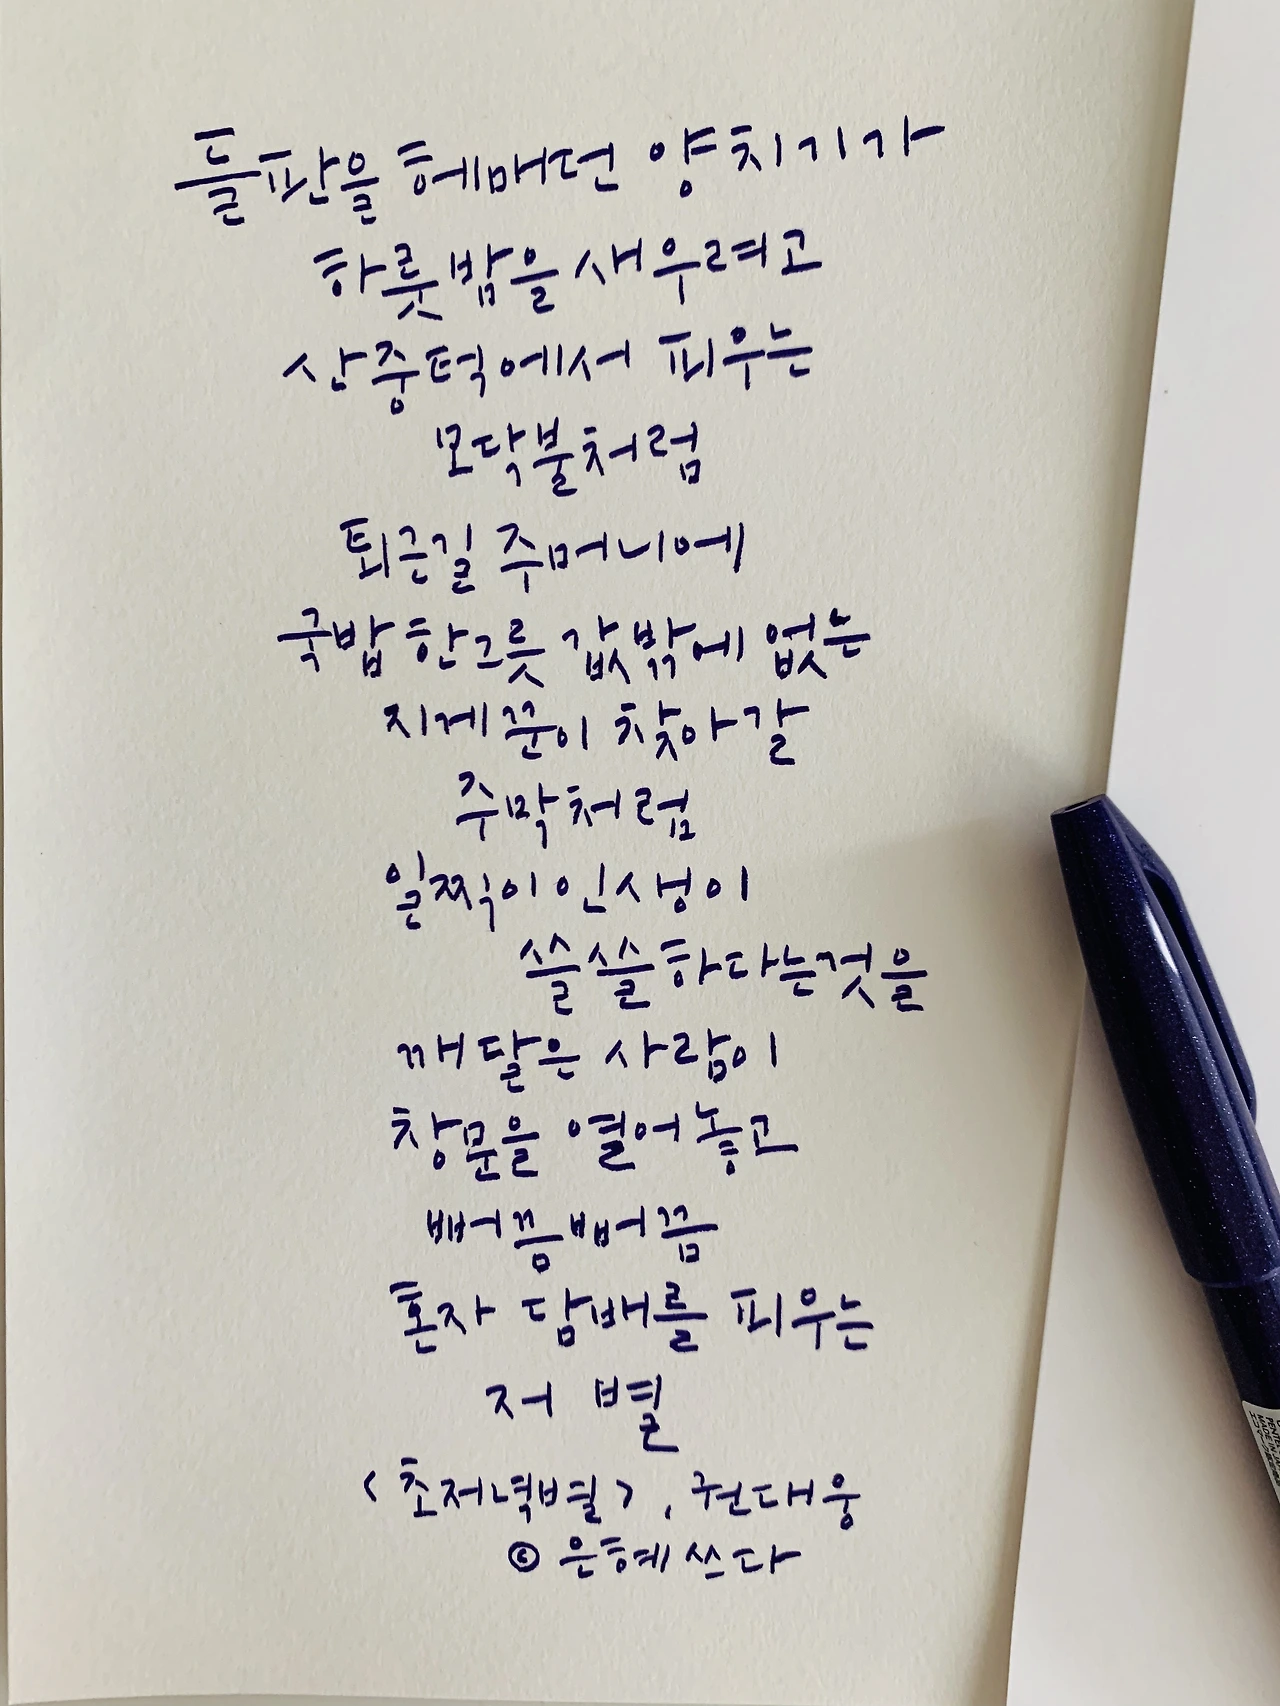 들판을 헤매던 양치기가
하룻밤을 새우려고
산중턱에서 피우는
모닥불처럼
퇴근길 주머니에
국밥 한그릇 값밖에 없는
지게꾼이 찾아갈
주막처럼
일찍이 인생이
쓸쓸하다는것을
깨달은 사람이
창문을 열어놓고
뻐끔뻐끔
혼자 담배를 피우는
저 별
<초저녁별>, 권대웅
© 은혜쓰다